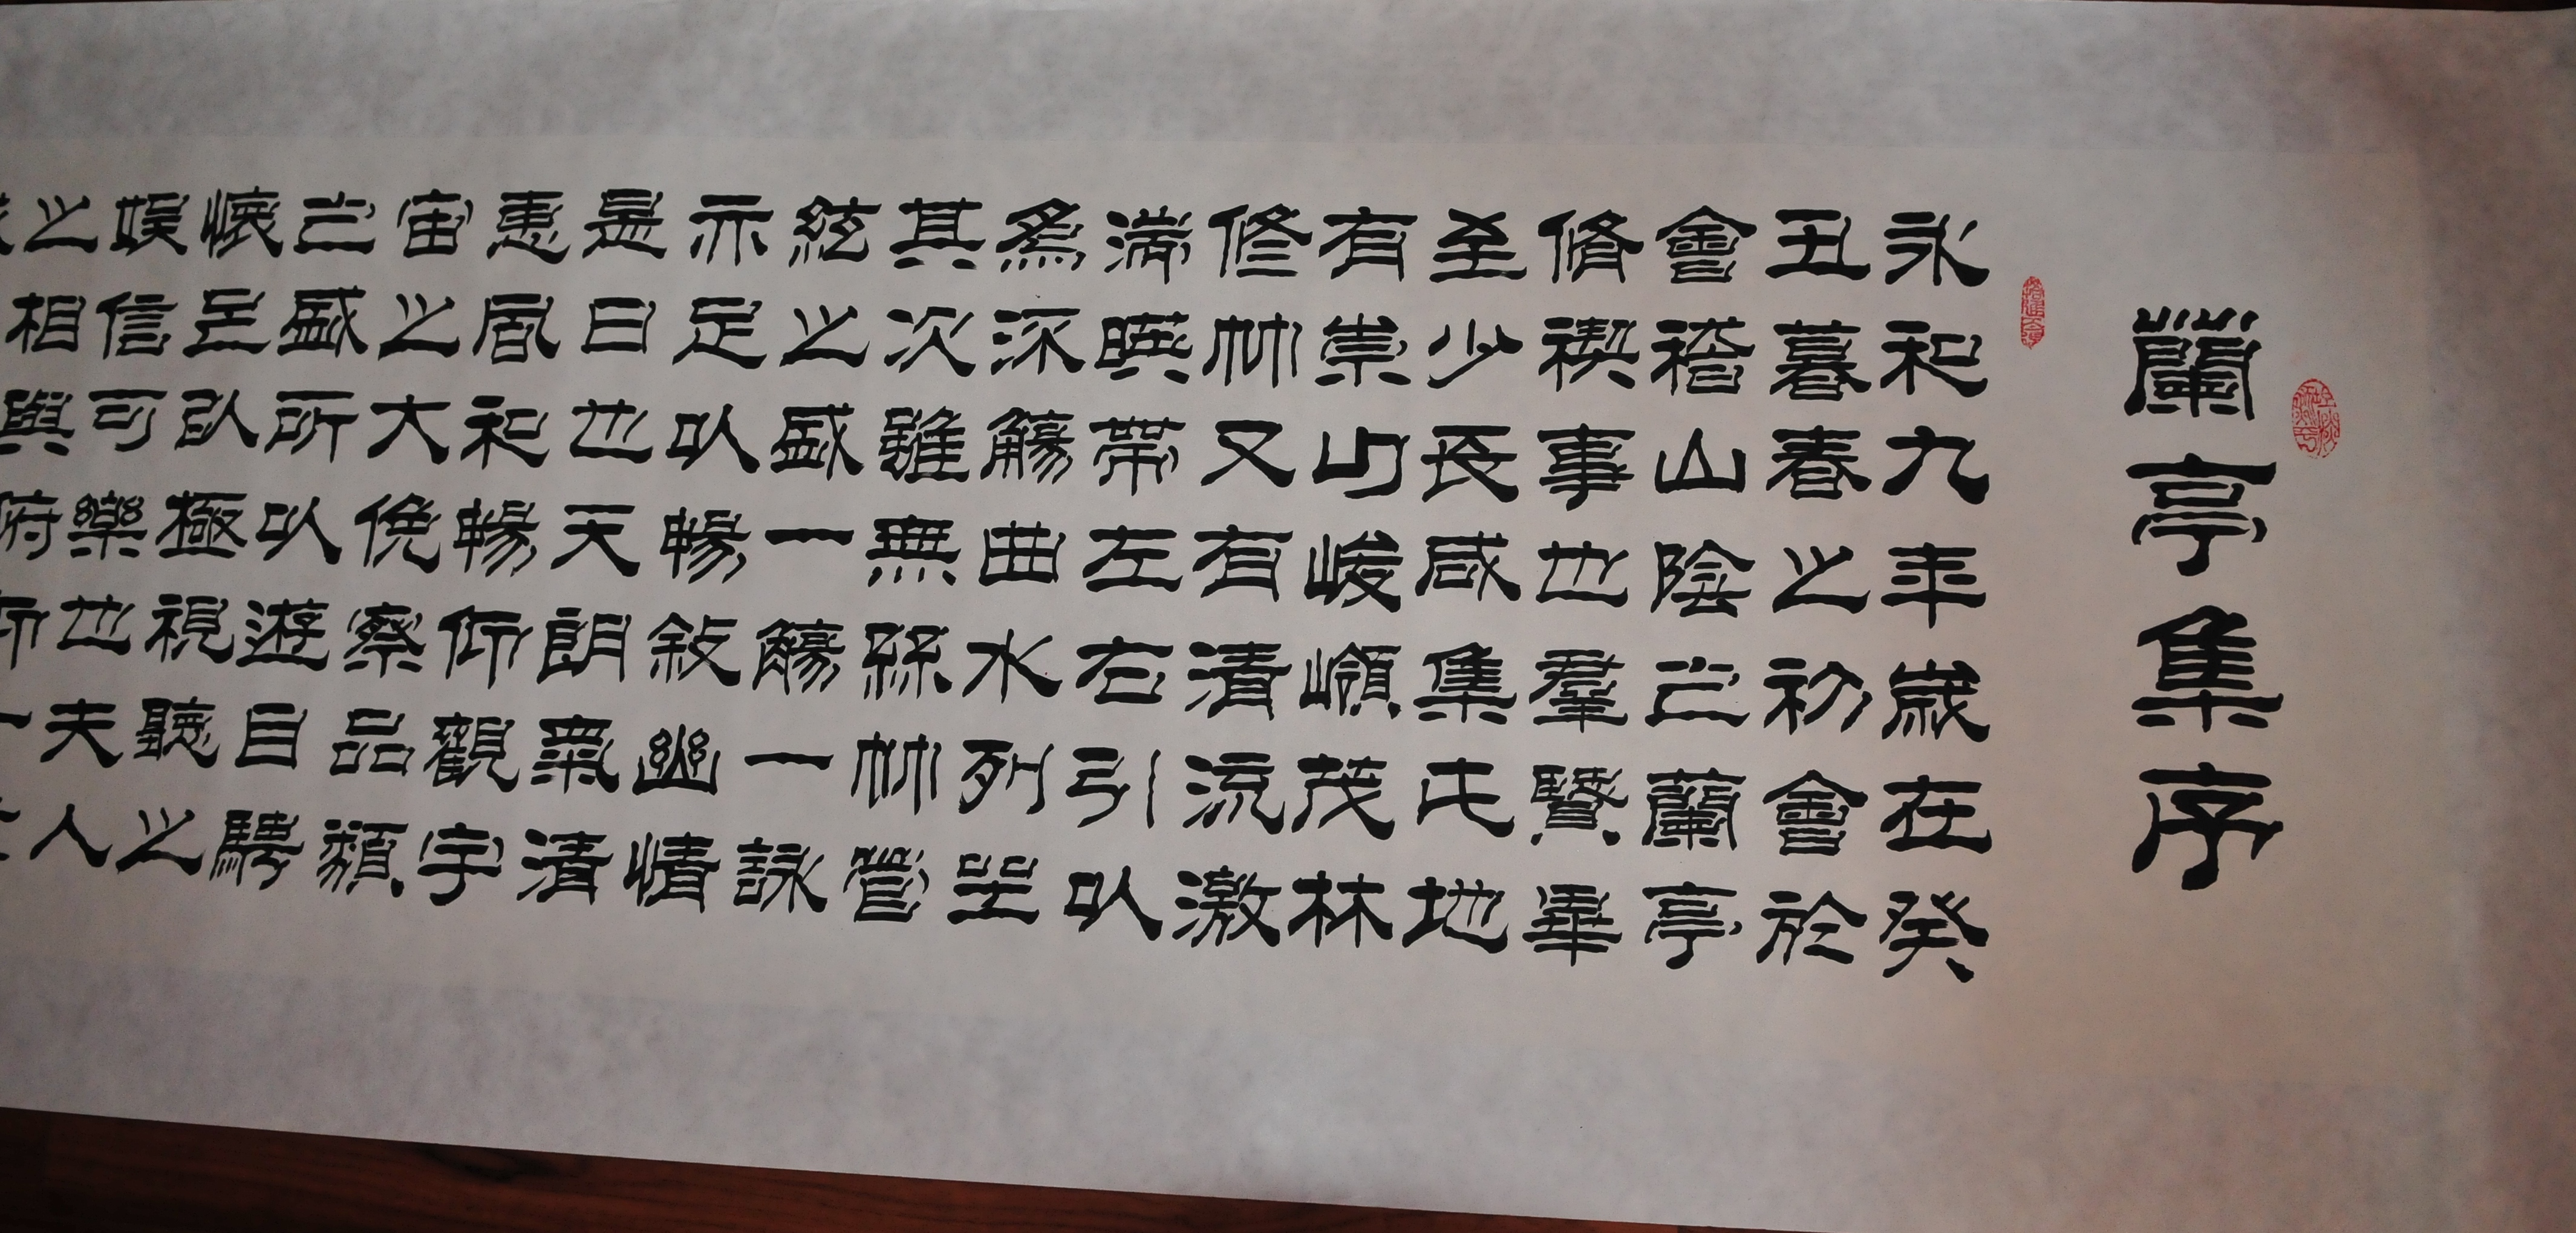 蘭亭集序
永和九年歲在癸
丑暮春之初會於
會稽山陰之蘭亭
脩禊事也羣賢畢
至少長咸集此地
有崇山峻嶺茂林
修竹又有清流激
湍暎帶左右引以
為流觴曲水列坐
其次雖無絲竹管
絃之盛一觴一詠
亦足以暢敘幽情
是日也天朗氣清
惠風和暢仰觀宇
宙之大俛察品類
之盛所以遊目騁
懷足以極視聽之
娛信可樂也夫人
之相與俯仰一